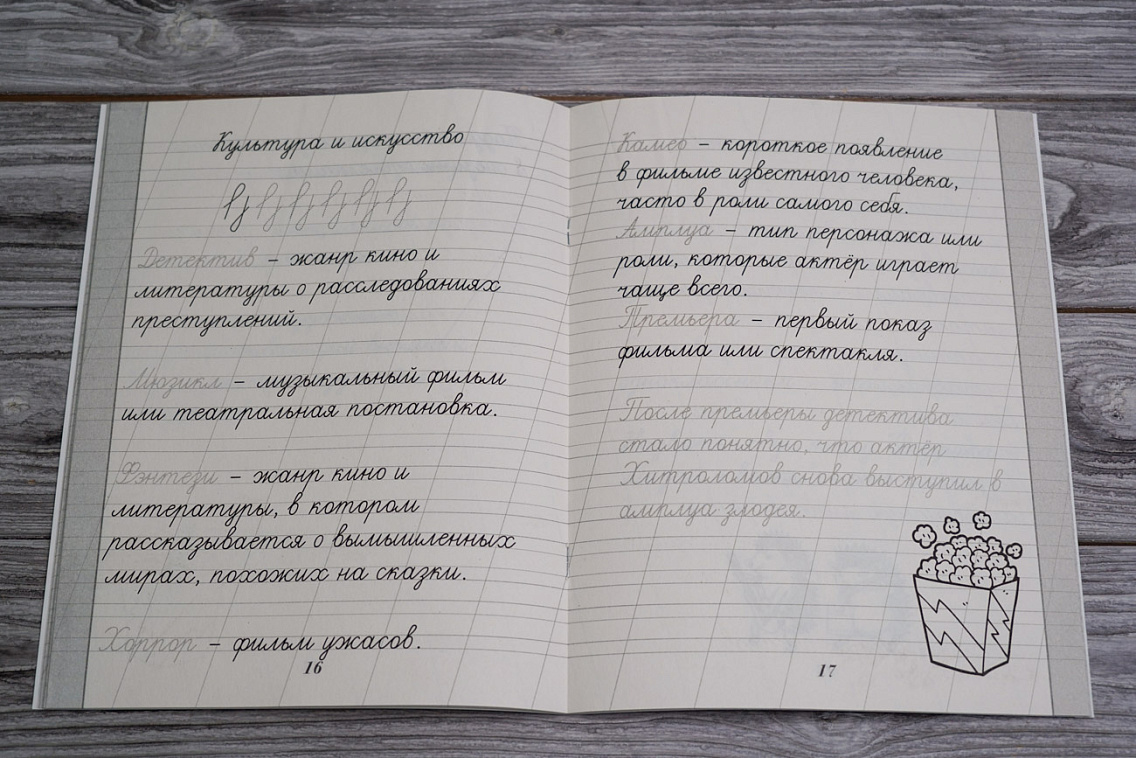 Культура и искусство
Детектив – жанр кино и
литературы о расследованиях
преступлений.
Мюзикл – музыкальный фильм
или театральная постановка.
Фэнтези – жанр кино и
литературы, в котором
рассказывается о вымышленных
мирах, похожих на сказки.
Хоррор – фильм ужасов.
16
Камео – короткое появление
в фильме известного человека,
часто в роли самого себя.
Амплуа – тип персонажа или
роли, которые актёр играет
чаще всего.
Премьера – первый показ
фильма или спектакля.
После премьеры детектива
стало понятно, что актёр
Хитроломов снова выступил в
амплуа злодея.
17